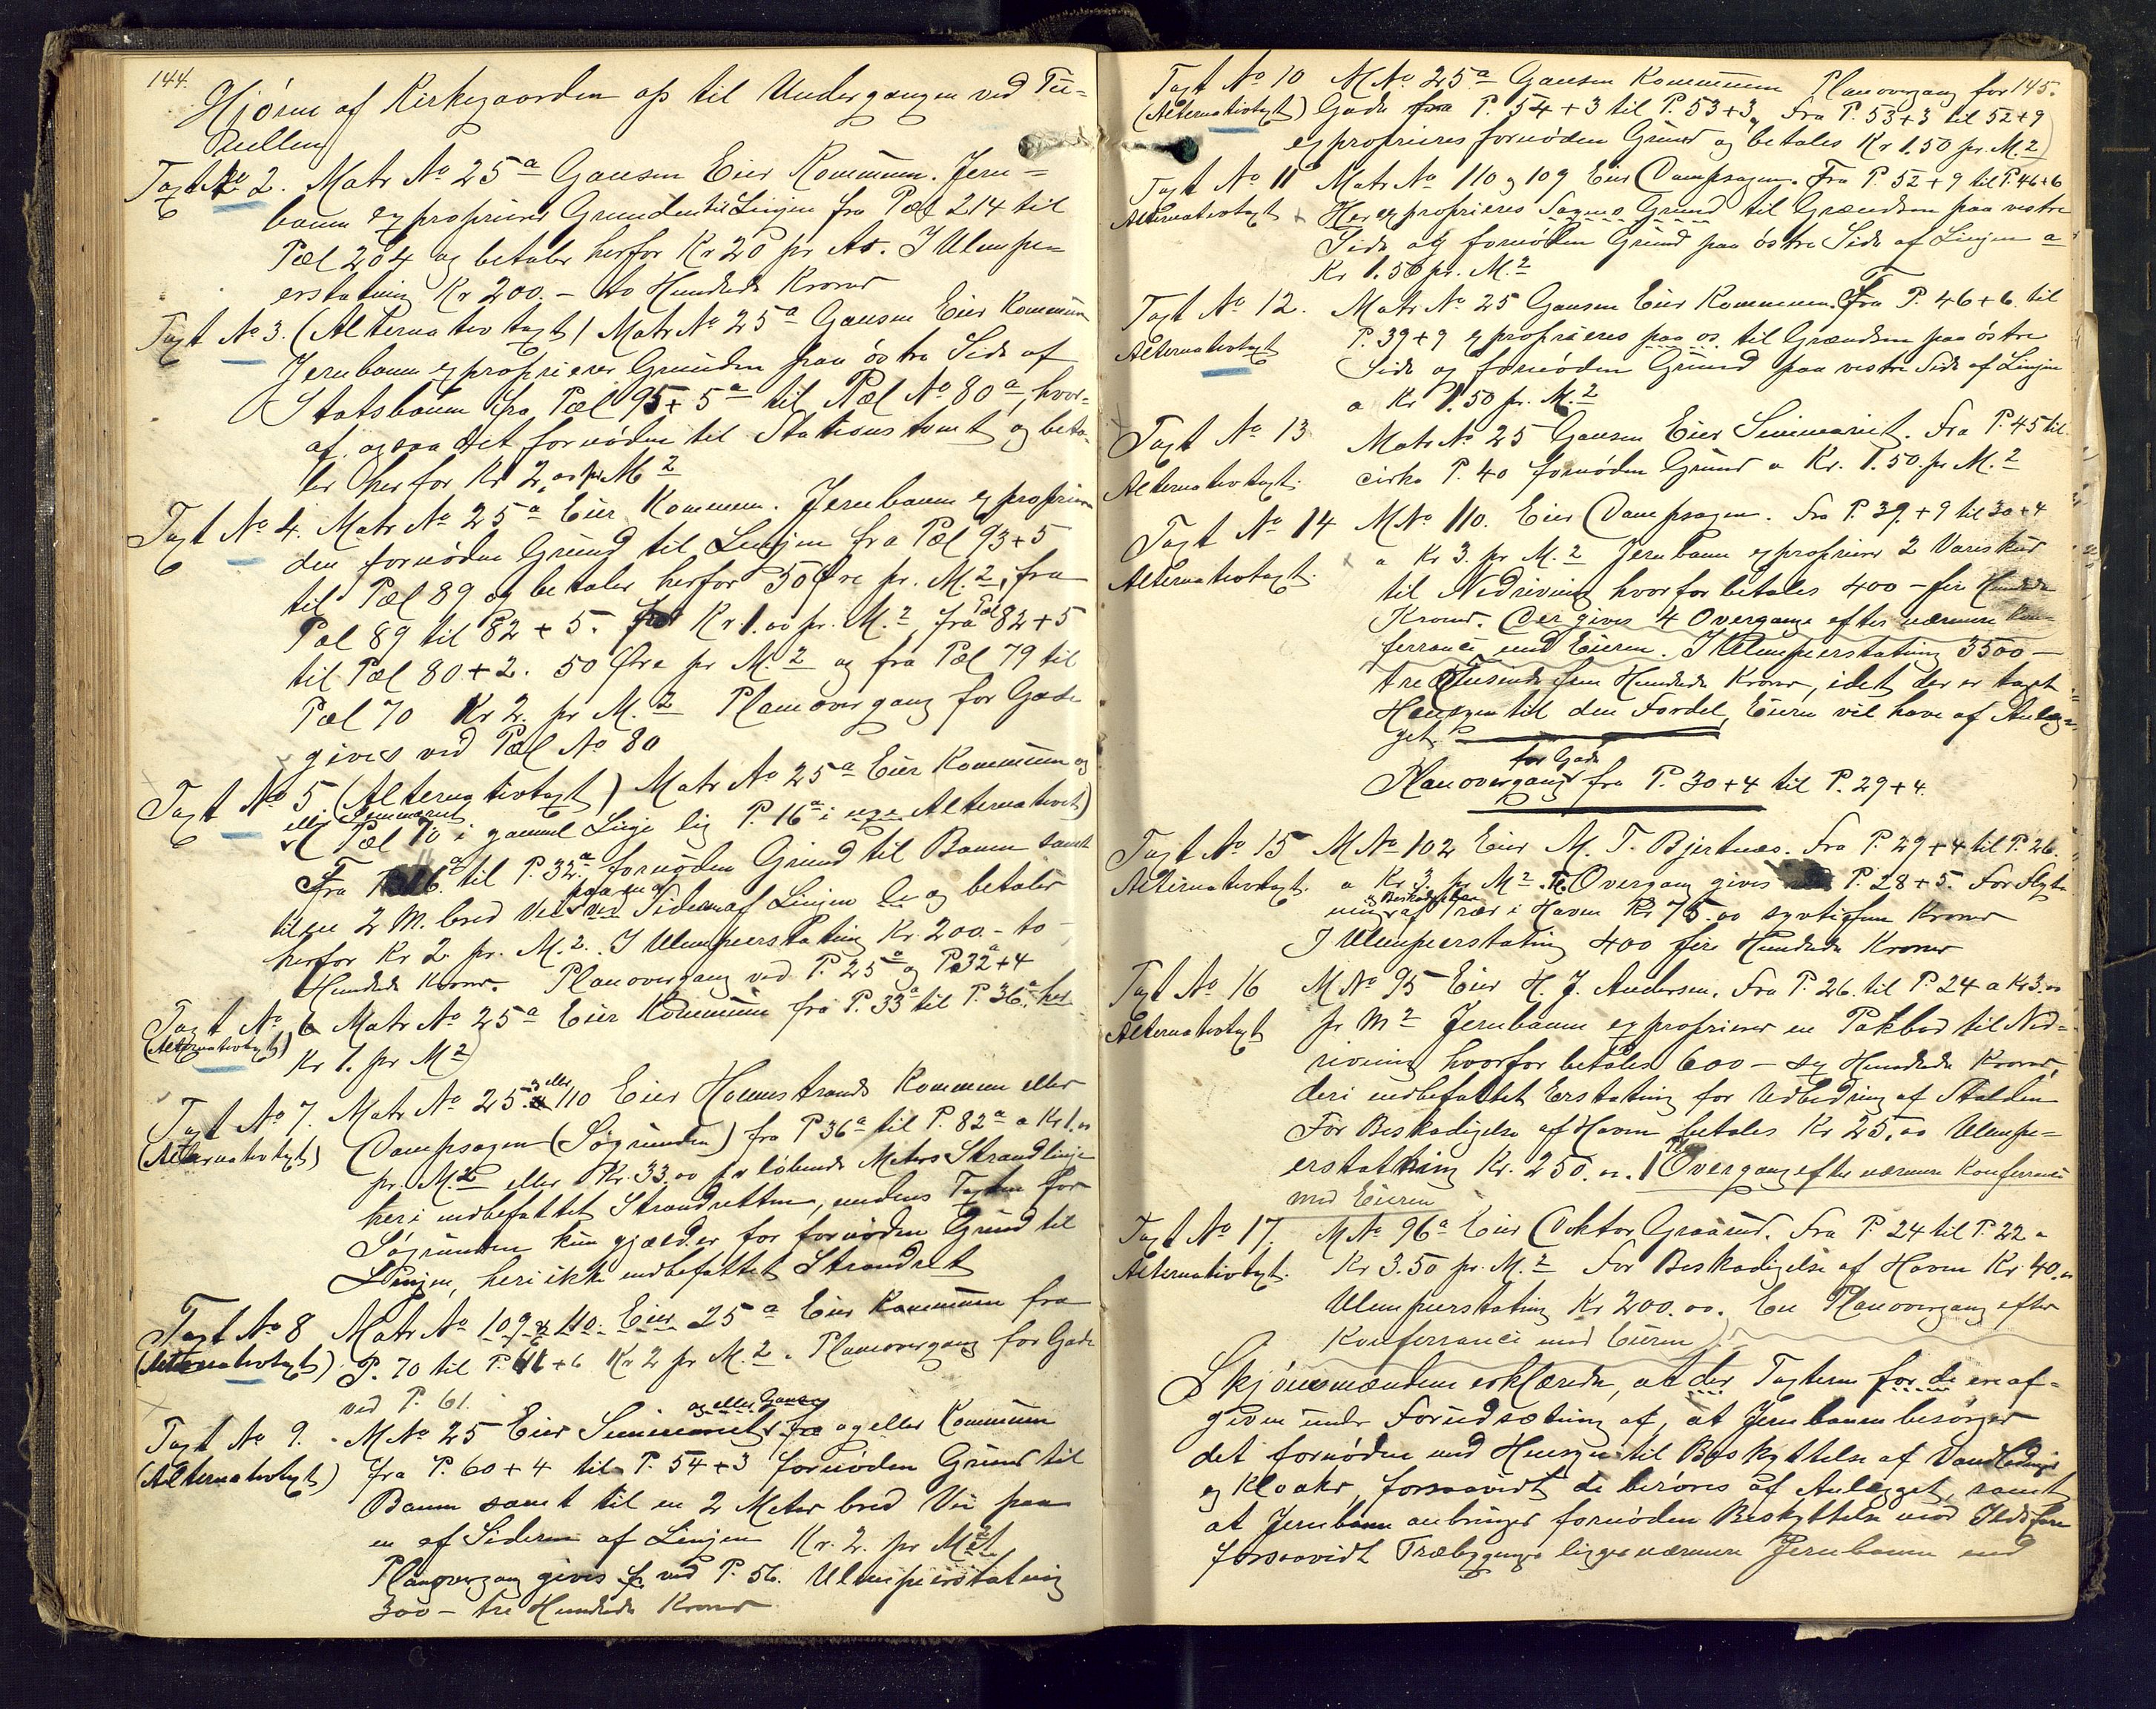 144.
Hjørne af Kirkegaarden op til Undergangen ved Tu-
nellen
Taxt No 2. Matr No 25a Gausen Eier Kommunen. Jern-
banen exproprierer Grunden til Linjen fra Pæl 214 til
Pæl 204 og betaler herfor Kr 20 pr Ar. I Ulempe-
erstatning Kr 200. - to Hundrede Kroner
Taxt No 3. (Alternativ taxt) Matr No 25a Gausen Eier Kommunen
Jernbanen exproprierer Grunden paa østre Side af
Statsbanen fra Pæl 95+5a til Pæl No 80a, hvor-
af ogsaa det fornødne til Stationstomt og beta-
ler herfor Kr 2,00 pr M2
Taxt No 4. Matr No 25a Eier Kommunen. Jernbanen exproprierer
den fornødne Grund til Linjen fra Pæl 93+5
til Pæl 89 og betaler herfor 50 Øre pr. M.2, fra
Pæl 89 til 82+5. Kr 1.00 pr. M.2, fra Pæl 82+5
til Pæl 80+2. 50 Øre pr M.2 og fra Pæl 79 til
Pæl 70 Kr 2. pr M.2 Planovergang for Gade
gives ved Pæl No 80
Taxt No 5. (Alternativtaxt) Matr No 25a Eier Kommunen og
eller Seminariet
(Pæl 70 i gammel Linje lig P. 16a i nye Alternativet)
Fra 16a til P. 32a fornøden Grund til Banen samt
til en 2 M. bred Vei paa en af Siderne af Linjen og betaler
herfor Kr 2 pr. M.2. I Ulempeerstatning Kr. 200. - to
Hundrede Kroner. Planovergang ved P. 25a og P. 32a+4
Taxt No 6 Matr No 25a Eier Kommunen fra P. 33a til P. 36a, her
(Alternativtaxt) Kr 1. pr M2
Taxt No 7. Matr No 25a og eller 110 Eier Holmestrands Kommune eller
(Alternativtaxt) Dampsagen (Søgrunden) fra P 36a til P. 82a a Kr 1.00
pr. M.2 eller Kr. 33.00 pr løbende Meter Strandlinje
heri indbefattet Strandretten, medens Taxten for
Søgrunden kun gjælder for fornøden Grund til
Linjen, heri ikke indbefattet Strandret
Taxt No 8 Matr No 109 & 110. Eier 25a Eier Kommunen fra
(Alternativtaxt) P. 70 til P. 61+6 Kr 2 pr M.2. Planovergang for Gade
ved P. 61.
Taxt No 9. M No 25 Eier Seminariet og eller Gausen fra og eller Kommunen
(Alternativtaxt) fra P. 60+4 til P. 54+3 fornøden Grund til
Banen samt til en 2 Meter bred Vei paa
en af Siderne af Linjen Kr. 2. pr M2
Planovergang gives ved P. 56. Ulempeerstatning
300 - tre Hundrede Kroner
145.
Taxt No 10 M No 25a Gausen Kommunen Planovergang for
(Alternativtaxt) Gade fra P. 54+3 til P. 53+3, Fra P. 53+3 til 52+9
exproprieres fornøden Grund og betales Kr 1.50 pr. M.2
Taxt No 11 Matr No 110 og 109 Eier Dampsagen. Fra P. 52+9 til P. 46+6
Alternativtaxt Her exproprieres Sagens Grund til Grændsen paa vestre
Side og fornøden Grund paa østre Side af Linjen a
Kr 1.50 pr. M.2
Taxt No 12. Matr No 25 Gausen Eier Kommunen. Fra P. 46+6 til
Alternativtaxt P. 39+9 exproprieres paa øs. til Grændsen paa østre
Side og fornøden Grund paa vestre Side af Linjen
a Kr 1.50 pr. M.2
Taxt No 13 Matr No 25 Gausen Eier Seminariet. Fra P. 45 til
Alternativtaxt. cirka P. 40 fornøden Grund a Kr. 1.50. pr M.2
Taxt No 14 M No 110. Eier Dampsagen. Fra P. 39.+9 til 30+4
Alternativtaxt. a Kr 3. pr M.2 Jernbanen exproprierer 2 Vareskur
til Nedrivning hvorfor betales 400 - fire Hundrede
Kroner. Der gives 4 Overgange efter nærmere Kon-
ferrance med Eieren. I Ulempeerstatning 3500 -
tre Tusinde fem Hundrede Kroner, idet der er taget
Hensyn til den Fordel, Eieren vil have af Anlæg-
get.
for Gade
Planovergang fra P. 30+4 til P. 29+4.
Taxt No 15 M No 102 Eier M. T. Bjertnæs. Fra P. 29+4 til P. 26.
Alternativtaxt. a Kr. 3. pr M2. Overgang gives P. 28+5. For Flyt-
ning og Beskadigelse af Trær i Haven Kr 75.00 syvtifem Kroner
I Ulempeerstatning 400 fire Hundrede Kroner
Taxt No 16 M No 95 Eier H. J. Andersen. Fra P. 26. til P. 24 a Kr 3.00
Alternativtaxt pr M2 Jernbanen exproprierer en Pakbod til Ned-
rivning hvorfor betales 600 - sex Hundrede Kroner,
deri indbefattet Erstatning for Udbedring af Stalden
For Beskadigelse af Haven betales Kr 25.00 Ulempe-
erstatning Kr. 250.00. 1 Overgang efter nærmere Konferrance
med Eieren
Taxt No 17. M No 96a Eier Doktor Graarud. Fra P. 24 til P. 22 a
Alternativtaxt. Kr 3.50 pr. M.2 For Beskadigelse af Haven Kr. 40.00
Ulempeerstatning Kr 200.00. En Planovergang efter
Konferrance med Eieren
Skjønsmændene erklærede, at der Taxterne for de ere af-
given under Forudsætning af, at Jernbanen besørger
det fornødne med Hensyn til Beskyttelse af Vandledninger
og Kloaker, forsaavidt de berøres af Anlægget, samt
at Jernbanen anbringer fornøden Beskyttelse mod Ildsfare
forsaavidt Træbygninger ligger nærmere Jernbanen end